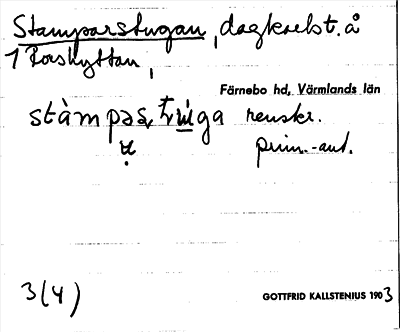 Stamparstugan, dagkarlst. å
1 Torskyttan,
Färnebo hd, Värmlands län
renskr.
prim.-ant.
3(4)
GOTTFRID KALLSTENIUS 1903